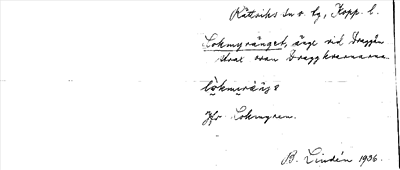 Rättviks sn o. tg, Kopp. l.
Lokmyränget, änge vid Draggån
strax ovan Draggkvarnarna.
Jfr Lokmyren.
B. Lindén 1936.